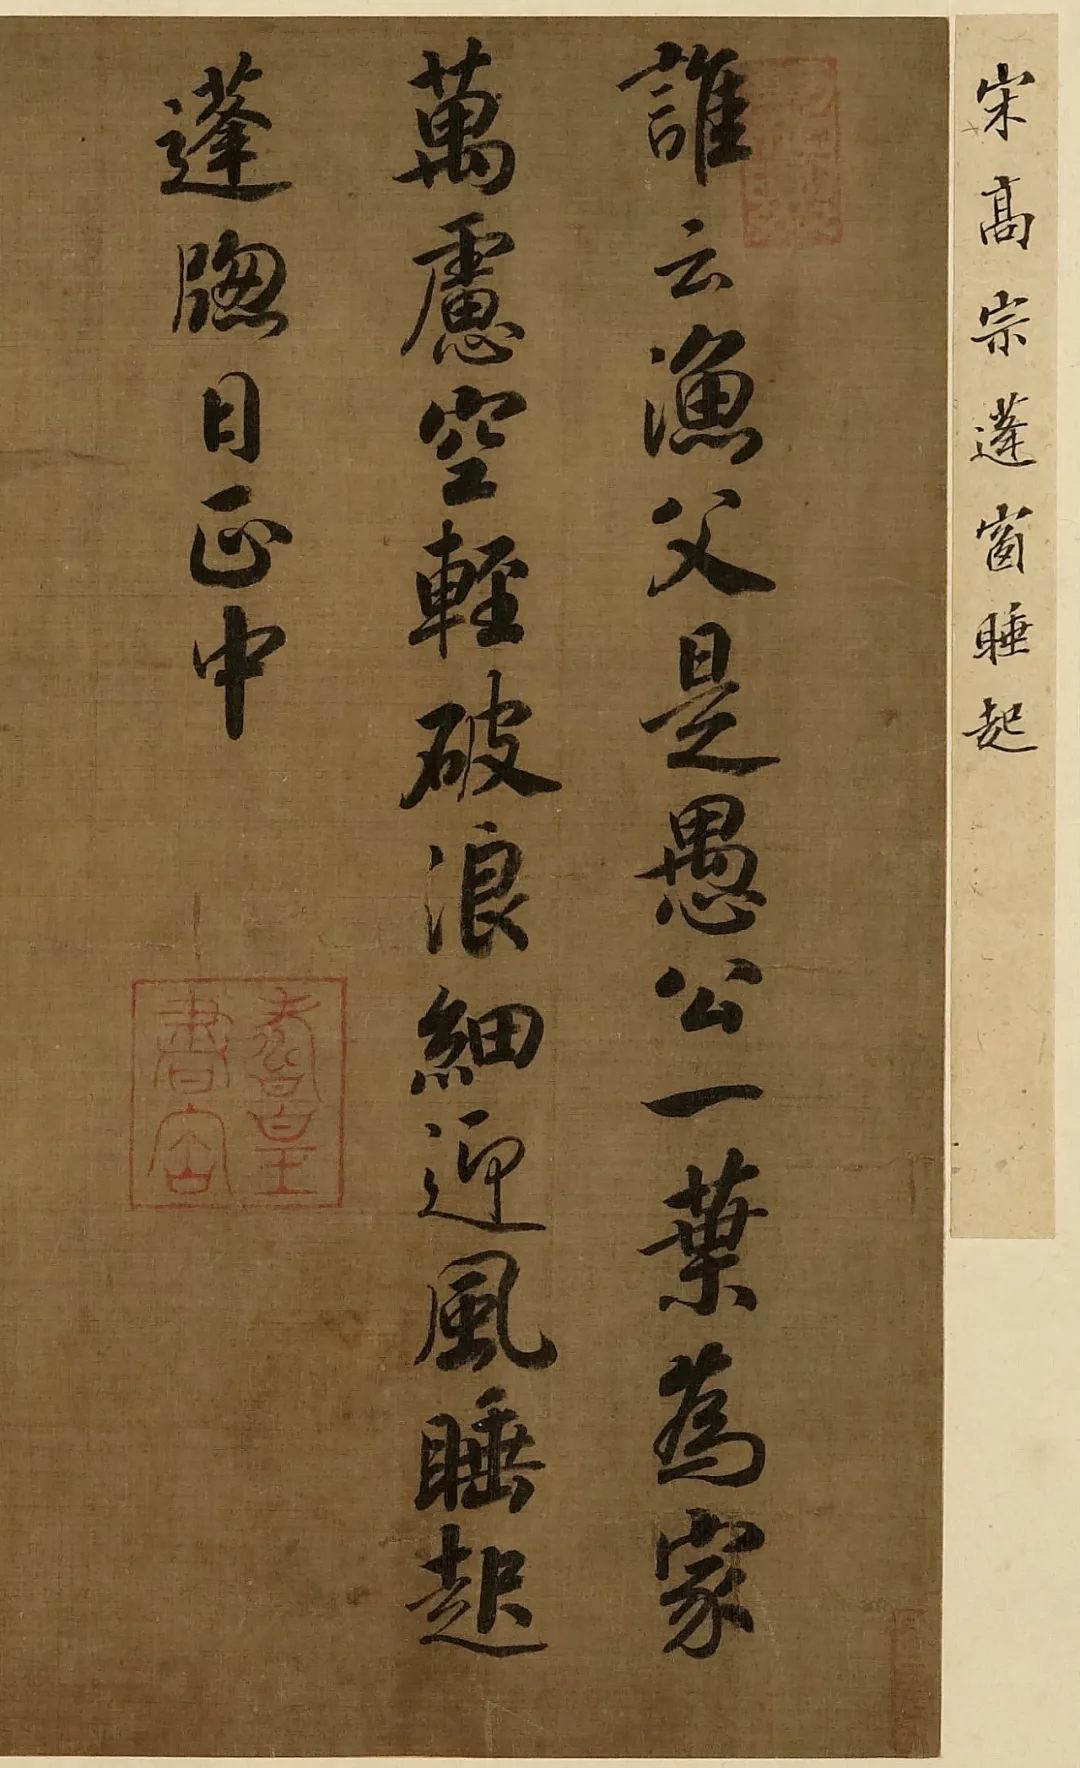 宋高宗蓬窗睡起
誰云漁父是愚公一葉為家
萬慮空輕破浪細迎風睡起
蓬牕日正中
壽皇書寶